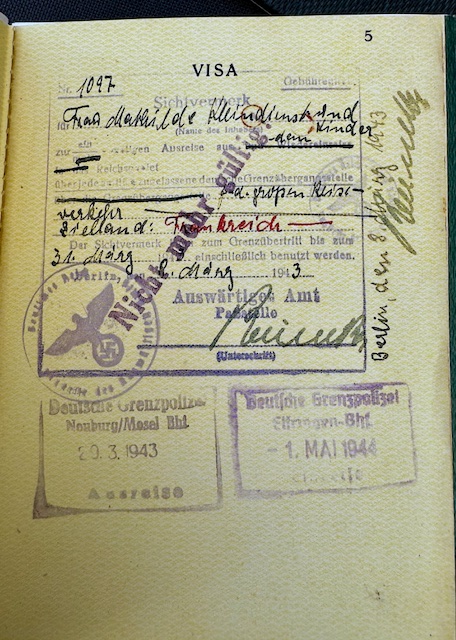 5
VISA
Nr. 1097 Gebührenfr.
Sichtvermerk
Frau Mathilde
für
(Name des Inhabers) dem Kinder
zur ein maligen Ausreise aus dem
Reichsgebiet
über jede zugelassene deutsche Grenzübergangsstelle
d. großen Reise-
verkehr
Zielland: Frankreich
Der Sichtvermerk zum Grenzübertritt bis zum
31. März einschließlich benutzt werden.
den 8. März 1943.
Auswärtiges Amt
Paßstelle
(Unterschrift)
Nicht mehr gültig!
Berlin, den 8. März 1943
Deutsche Grenzpolizei
Neuburg/Mosel Bhf.
20.3.1943
Ausreise
Deutsche Grenzpolizei
-1. MAI 1944